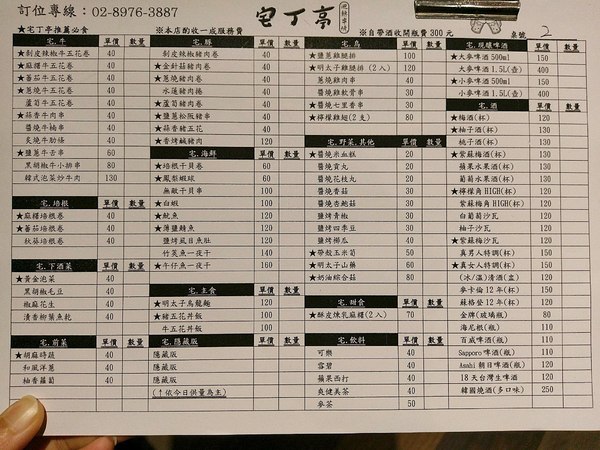 訂位專線：02-8976-3887
宅丁亭
★宅丁亭推薦必食
※本店酌收一成服務費
※自帶酒收開瓶費 300 元
桌號 2
宅.牛 單價 數量
★剝皮辣椒牛五花卷 40
★麻糬牛五花卷 40
★番茄牛五花卷 40
★蔥燒牛五花卷 40
蘆筍牛五花卷 40
★蒜香牛肉串 40
醬燒牛腩串 40
炙燒牛肋條 40
★鹽蔥牛舌串 60
黑胡椒牛小排串 80
韓式泡菜炒牛肉 130
宅.培根 單價 數量
★麻糬培根卷 40
★番茄培根卷 40
秋葵培根卷 40
宅.下酒菜 單價 數量
★黃金泡菜 40
黑胡椒毛豆 40
椒麻花生 40
清香柳葉魚乾 40
宅.前菜 單價 數量
★胡麻時蔬 40
和風洋蔥 40
柚香蘿蔔 40
宅.豚 單價 數量
剝皮辣椒豬肉卷 40
★金針菇豬肉卷 40
★蔥燒豬肉卷 40
水蓮豬肉捲 40
★蘆筍豬肉卷 40
★蔥燒豬肉串 40
★鹽蔥松阪豬串 40
★蒜香豬五花 40
★香烤鹹豬肉 120
宅.海鮮 單價 數量
★培根干貝卷 60
★鳳梨蝦球 60
無敵干貝串 100
★白蝦 100
★魷魚 120
★薄鹽鯖魚 120
鹽烤風目魚肚 120
竹筴魚一夜干 140
★午仔魚一夜干 160
宅.主食 單價 數量
★明太子烏龍麵 120
★豬五花丼飯 100
牛五花丼飯 100
宅.隱藏版 單價 數量
隱藏版
隱藏版
隱藏版
(↑依今日供量為主)
宅.鳥 單價 數量
★鹽蔥雞腿排 100
★明太子雞腿排(2入) 120
蔥燒雞肉串 40
鹽燒雞軟骨串 30
醬燒七里香串 30
★檸檬雞翅(2支) 80
宅.野菜.其他 單價 數量
★醬燒米血糕 20
★醬燒貢丸 20
★醬燒花枝丸 20
醬燒香菇 30
★醬燒杏鮑菇 30
鹽烤青椒 30
鹽烤四季豆 30
鹽烤櫛瓜 40
★帶殼玉米筍 50
★明太子山藥 60
★奶油綜合菇 80
宅.甜食 單價 數量
★酥皮煉乳麻糬(2入) 70
宅.飲料 單價 數量
可樂 40
雪碧 40
蘋果西打 40
爽健美茶 40
麥茶 50
宅.現釀啤酒 單價 數量
★大麥啤酒 500ml 150
大麥啤酒 1.5L(壺) 400
★小麥啤酒 500ml 150
小麥啤酒 1.5L(壺) 400
宅.酒 單價 數量
★梅酒(杯) 120
★柚子酒(杯) 130
桃子酒(杯) 130
★紫蘇梅酒(杯) 130
蘋果水果酒(杯) 130
葡萄水果酒(杯) 130
★檸檬角 HIGH(杯) 120
★紫蘇梅 HIGH(杯) 120
白葡萄沙瓦 120
柚子沙瓦 120
★紫蘇梅沙瓦 120
真男人特調(杯) 150
★真女人特調(杯) 150
(冰/溫)清酒(盅) 120
麥卡倫 12年(杯) 150
蘇格登 12年(杯) 120
金牌(玻璃瓶) 80
海尼根(瓶) 110
百威啤酒(瓶) 110
Sapporo 啤酒(瓶) 110
Asahi 朝日啤酒(瓶) 110
18天台灣生啤酒 120
韓國燒酒(多口味) 250